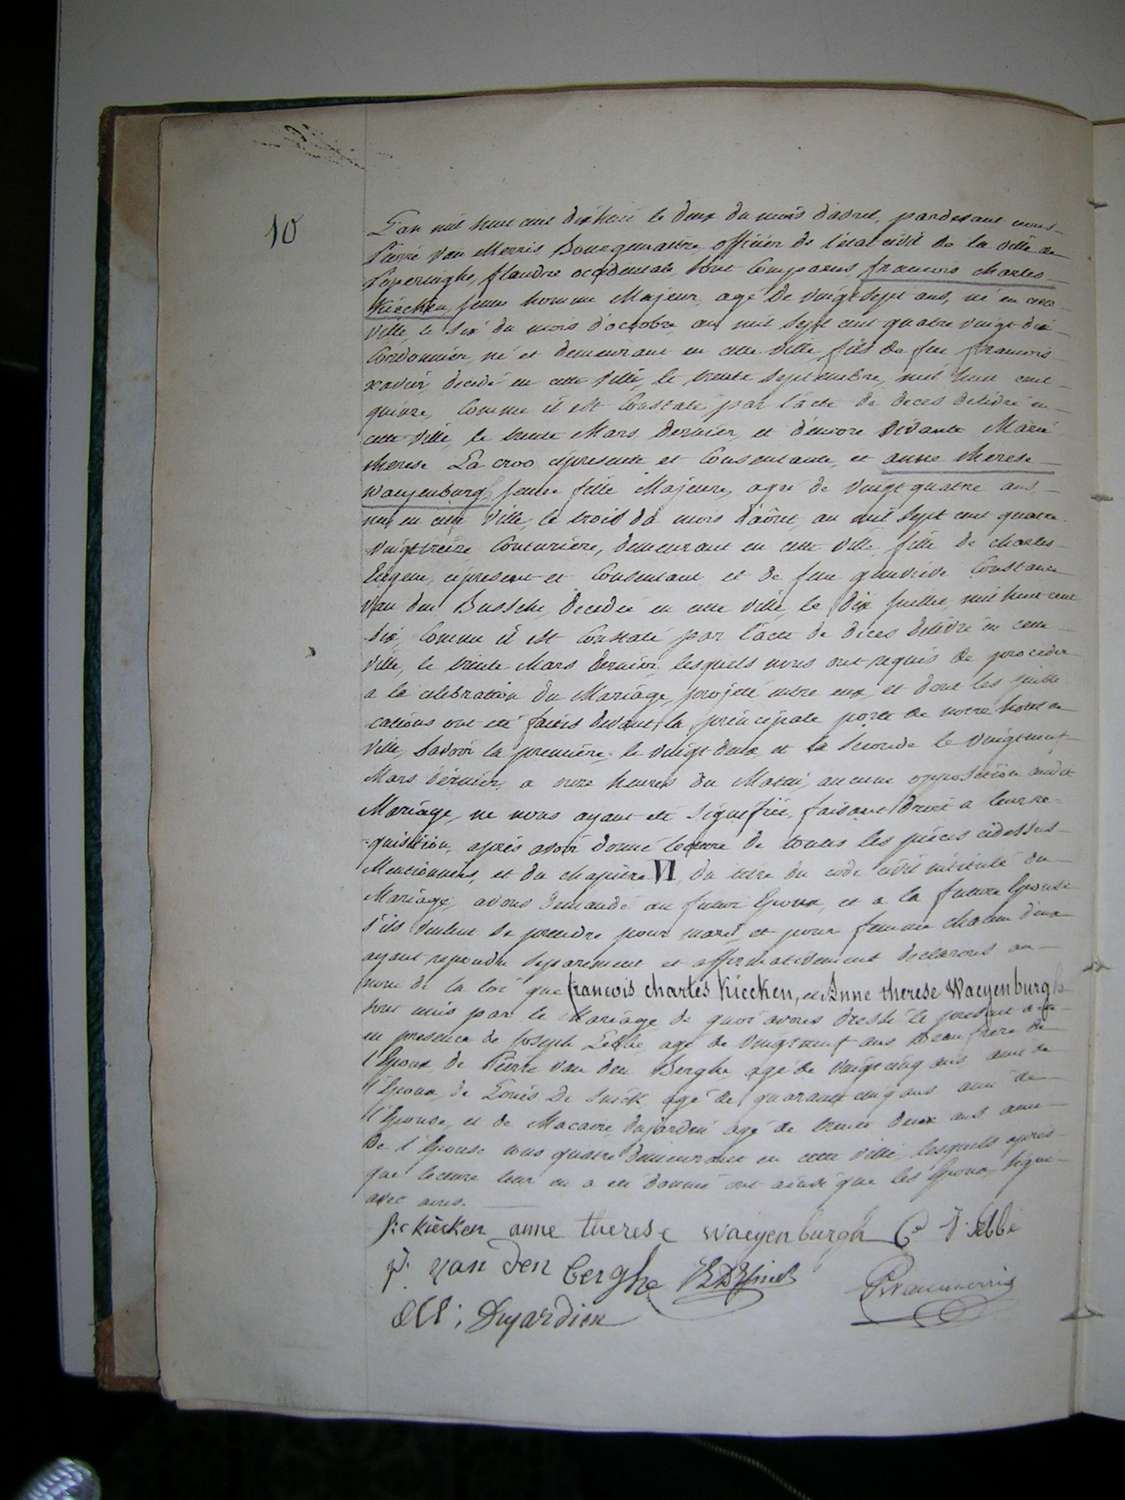 10
L'an mil huit cent dix huit le deux du mois d'avril, pardevant nous
Pierre Van Merris Bourguemaitre officier de l'état civil de la ville de
Poperinghe, flandre occidentale sont Comparus francois charles
Kiecken, jeune homme Majeur, agé de vingt sept ans, né en cette
ville, le six du mois d'octobre an mil sept cent quatre vingt dix
Cordonnier, né et demeurant en cette ville fils de feu francois
xavier decedé en cette ville, le trente septembre, mil huit cent
quinze, Comme il est Constaté par l'acte de deces delivré en
cette ville, le trente Mars dernier, et d'encore vivante Marie
therese La croo cipresente et Consentante, et anne therese
Waeyenburgh, jeune fille Majeure, agée de vingt quatre ans
née en cette ville, le trois du mois d'août an mil sept cent quatre
vingt treize Couturière, demeurant en cette ville, fille de charles
Eugene, cipresent et Consentant et de feue genvieve Constance
Van den Bussche, decedée en cette ville, le dix juillet, mil huit cent
six, Comme il est Constaté par l'acte de deces delivré en cette
ville, le trente Mars dernier, lesquels nous ont requis de proceder
a la celebration du Mariage projeté entre eux, et dont les publi
cations ont été faites devant la principale porte de notre hotel de
ville, Savoir la premiere, le vingt deux et la seconde le vingt neuf
Mars dernier, a onze heures du Matin, aucune opposition audit
Mariage, ne nous ayant été signifiée, faisant droit a leur re-
-quisition, après avoir donné lecture de toutes les pièces cidessus
Mentionnées, et du chapitre VI, du titre du code civil intitulé du
Mariage, avons demandé au futur Epoux, et a la future Epouse
s'ils veulent se prendre pour mari, et pour femme chacun d'eux
ayant repondu separement et affirmativement declarons au
nom de la loi que francois charles Kiecken, et Anne therese Waeyenburgh
sont unis par le Mariage de quoi avons dressé le present acte
en presence de Joseph Lebbe agé de vingt neuf ans beau frere de
l'Epoux de Pierre Van den Berghe, agé de vingt cinq ans ami de
l'Epoux, de Louis De agé de quarante cinq ans ami de
l'Epouse, et de Macaire dujardin agé de trente deux ans ami
de l'Epouse tous quatre demeurant en cette ville, lesquels après
que lecture leur en a été donnée ont ainsi que les Epoux signé
avec nous.
f: c kiecken anne therese waeyenburgh J: Lebbe
P. van den berghe P vanmerris
M: Dujardien